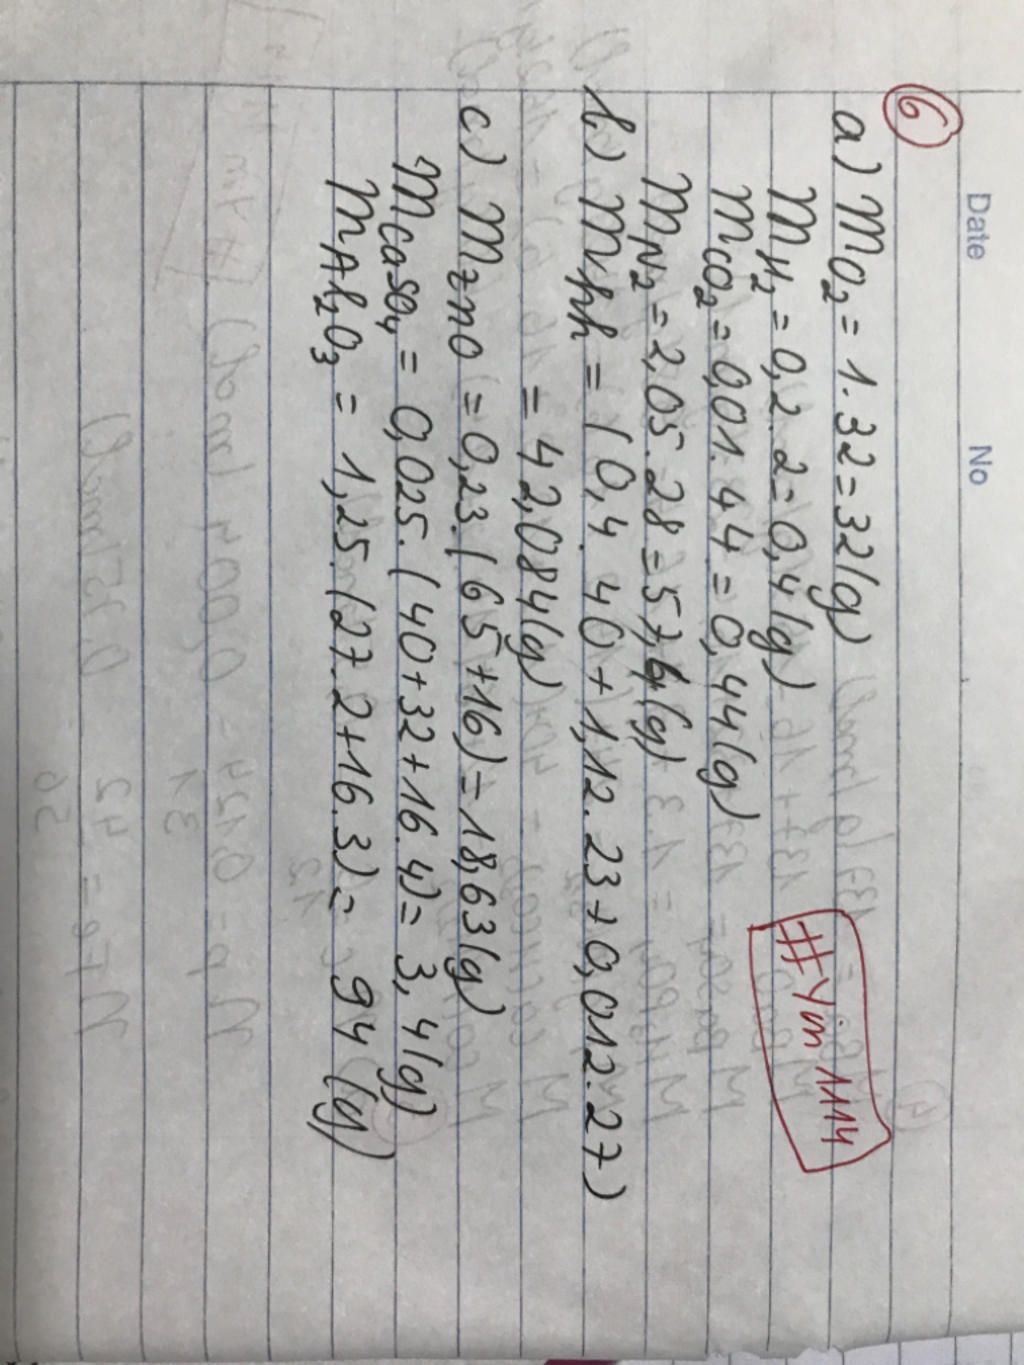 Date No
6
a) mO2 = 1.32=32(g)
mH2 = 0,2.2=0,4(g)
mCO2 = 0,01.44 = 0,44(g)
mN2 = 2,05.28 = 57,4(g)
b) mhh = (0,4.40+1,12.23+0,012.27)
= 42,084(g)
c) mZnO = 0,23.(65+16) = 18,63(g)
mCaSO4 = 0,025.(40+32+16.4) = 3,4(g)
mAl2O3 = 1,25.(27.2+16.3) = 94 (g)
#Yin 1114